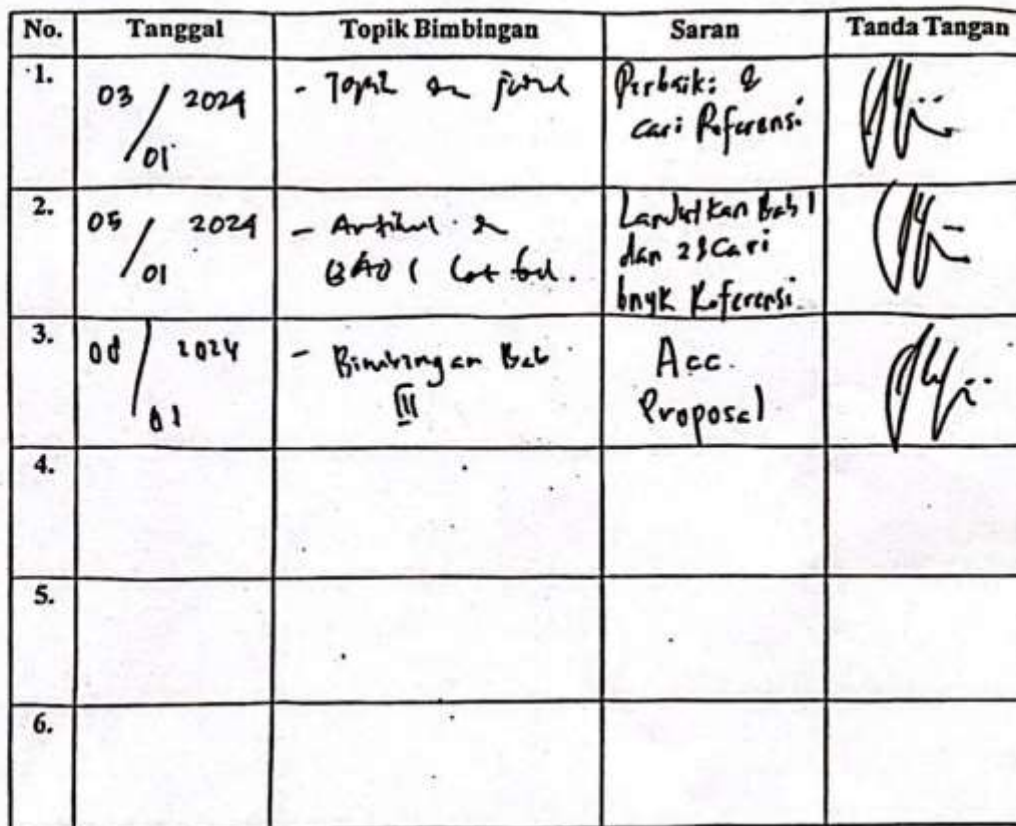 No. Tanggal Topik Bimbingan Saran Tanda Tangan
1. 03/01 2024 - Topik Perbaiki &
cari Referensi
2. 05/01 2024 - Lanjutkan Bab 1
dan 2 & Cari
bnyk Referensi.
3. 2024 - Bimbingan Bab
III
Acc.
Proposal
4.
5.
6.